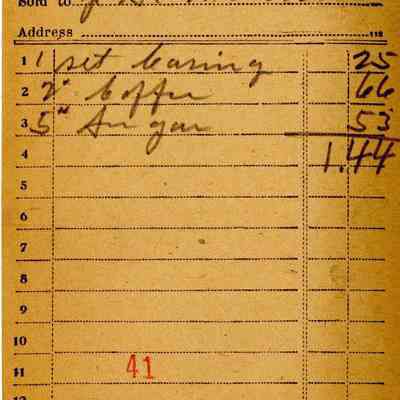 Sold to
Address 112
1 1 set casing 25
2 2" Coffee 66
3 5" Sugar 53
4 1.44
5
6
7
8
9
10
11 41
12